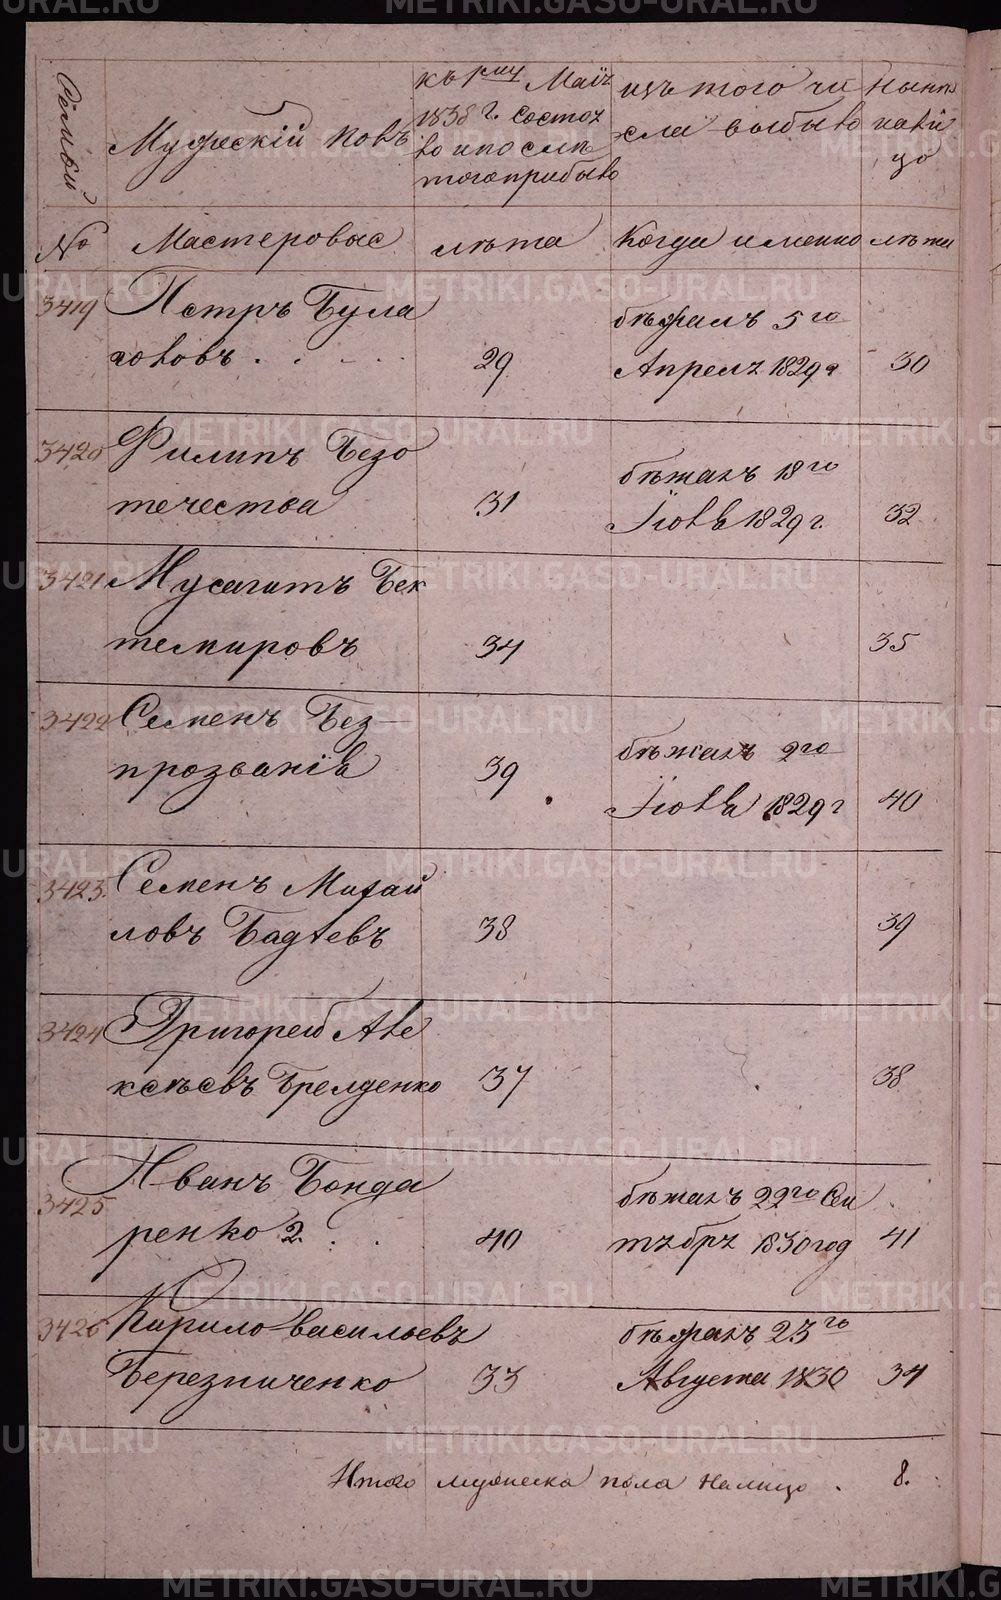 Семьи
Мужескій полъ
1838 г. состоя
ло и после
того прибыло
изъ того чи
сла выбыло
Ныне
нали
цо
№ Мастеровые лѣта Когда именно лѣта
3419 Петръ Була
ховъ . . . . 29 30
бѣжалъ 5го
Апреля 1829 г
3420 Филипъ Безо
течества 31 32
бѣжалъ 18го
Іюля 1829 г.
3421 Мусагитъ Бек
темировъ 34 35
3422 Семенъ Без-
прозванія 39 40
бѣжалъ 2го
Іюля 1829 г
3423. Семенъ Михай
ловъ Бадѣевъ 38 39
3424 Григорей Але
ксѣевъ 37 38
3425 Иванъ Бонда
ренко 2. . . 40 41
бѣжалъ 22го Сен
тября 1830 год
3426 Кирило Васильевъ
Березниченко 33 34
бѣжалъ 23го
Августа 1830
Итого мужеска пола налицо . 8.
METRIKI.GASO-URAL.RU